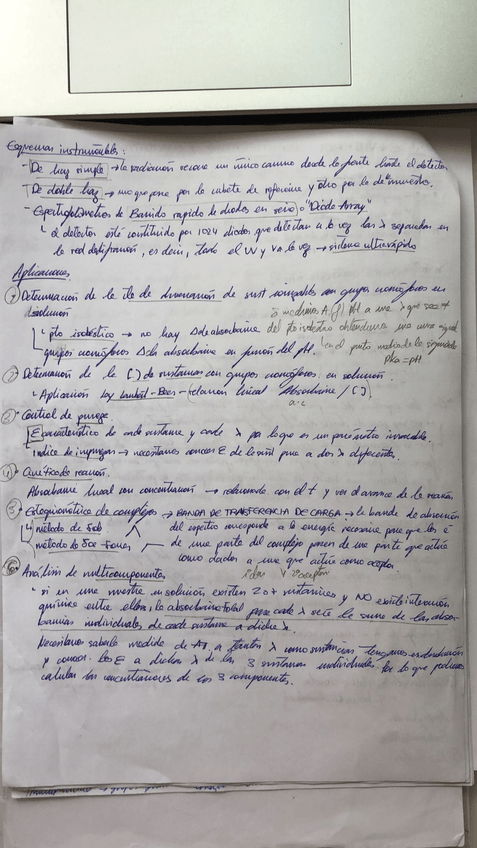 Esquemas instrumentales:
- De haz simple → la radiación recorre un único camino desde la fuente hasta el detector
- De doble haz → uno que pasa por la cubeta de referencia y otro por la de muestra.
- Espectrofotómetros de Barrido rápido de diodos en serie o "Diode Array"
↳ el detector está constituido por 1024 diodos que detectan a la vez las λ separadas en
la red de difracción, es decir, todo el UV y Vis la vez → sistema ultrarápido
Aplicaciones
① Determinación de la cte de disociación de sust ionizables con grupos cromóforos en
disolución
si medimos A. f() pH a una λ que sea ≠
↳ pto isobéstico → no hay Δ de absorbancia
del pto isobéstico obtendremos una curva sigmoid
grupos cromóforos Δ de absorbancia en función del pH.
en el punto medio de la sigmoide
pka = pH
② Determinación de la [ ] de sustancias con grupos cromóforos en solución.
↳ Aplicación ley Lambert-Beer → relación lineal Absorbancia / [ ]
a·c
③ Control de pureza
E característico de cada sustancia y cada λ por lo que es un parámetro invariable.
Indice de impureza → necesitamos conocer E de la sust pura a dos λ diferentes.
④ Cinética de reacción.
Absorbancia lineal con concentración → relacionado con el t y ver el avance de la reacción
⑤ Estequiometría de complejos → BANDA DE TRANSFERENCIA DE CARGA → la banda de absorción
↳ método de Job
del espectro corresponde a la energía necesaria para que los e⁻
método de Yoe-Jones
de una parte del complejo pasen de una parte que actúa
como dador a una que actúe como aceptor.
⑥ Análisis de multicomponentes
1º dador y 2º aceptor
↳ si en una muestra en solución existen 2 o + sustancias y NO existe interacción
química entre ellas, la absorbancia total para cada λ será la suma de las absor-
bancias individuales de cada sustancia a dicha λ.
Necesitamos saber la medida de AT a tantas λ como sustancias tengamos en disolución
y conocer los E a dichas λ de las 3 sustancias individuales. Por lo que podremos
calcular las concentraciones de los 3 componentes.